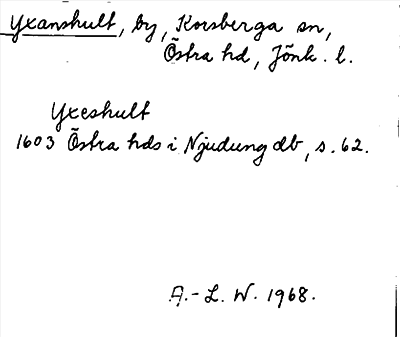 Yxanshult, by, Korsberga sn,
Östra hd, Jönk. l.
Yxeshult
1603 Östra hds i Njudung db, s. 62.
A.-L. W. 1968.